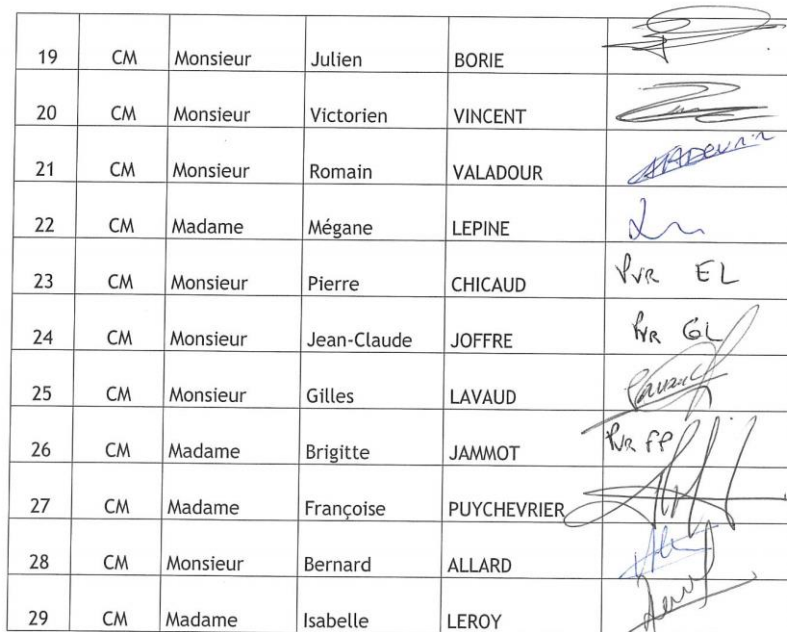 19 CM Monsieur Julien BORIE
20 CM Monsieur Victorien VINCENT
21 CM Monsieur Romain VALADOUR
22 CM Madame Mégane LEPINE
23 CM Monsieur Pierre CHICAUD PVR EL
24 CM Monsieur Jean-Claude JOFFRE PVR GL
25 CM Monsieur Gilles LAVAUD
26 CM Madame Brigitte JAMMOT PVR FP
27 CM Madame Françoise PUYCHEVRIER
28 CM Monsieur Bernard ALLARD
29 CM Madame Isabelle LEROY